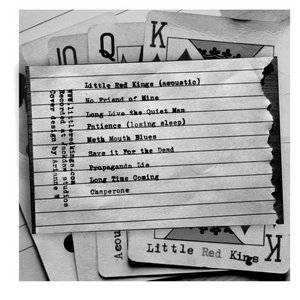 10
Q
K
Little Red Kings (acoustic)
No Friend of Mine
Long Live the Quiet Man
Patience (losing sleep)
Meth Mouth Blues
Save it For the Dead
Propaganda Lie
Long Time Coming
Chaperone
Recorded at Jacidar studios
Cover design by
Acou
Little Red Kings
K